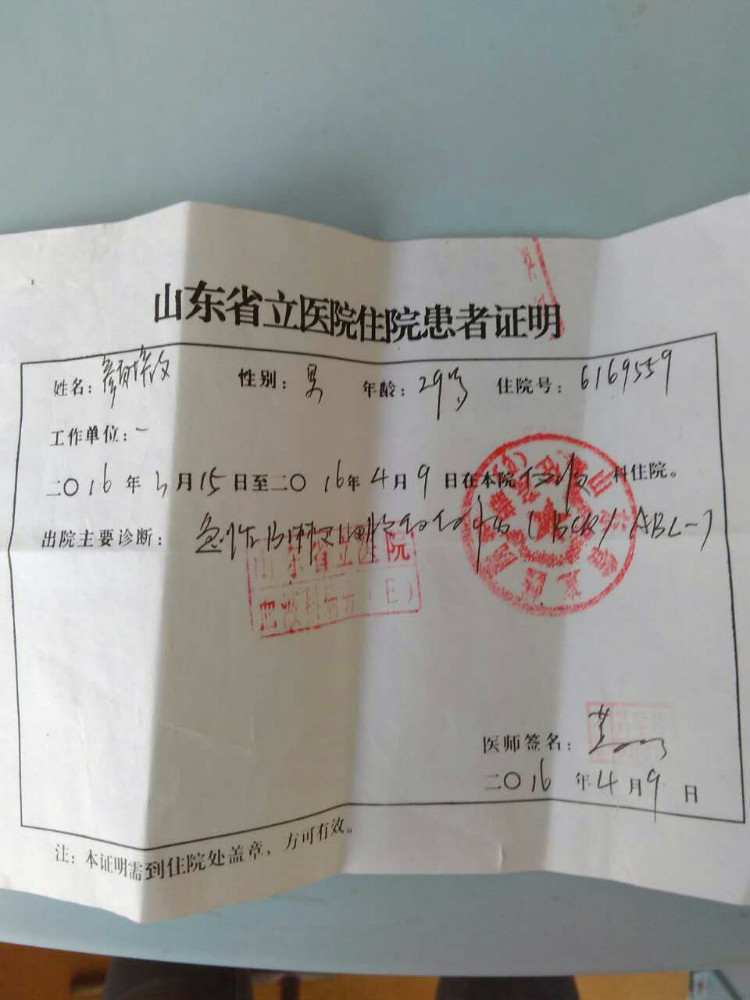 山东省立医院住院患者证明
姓名： 性别：男 年龄：29岁 住院号：6169559
工作单位：一
二〇16年3月15日至二〇16年4月9日在本院 科住院。
出院主要诊断：急性B淋巴细胞白血病（BCR/ABL-）
山东省立医院
血液科病房（E）
医师签名：
二〇16年4月9日
注：本证明需到住院处盖章，方可有效。